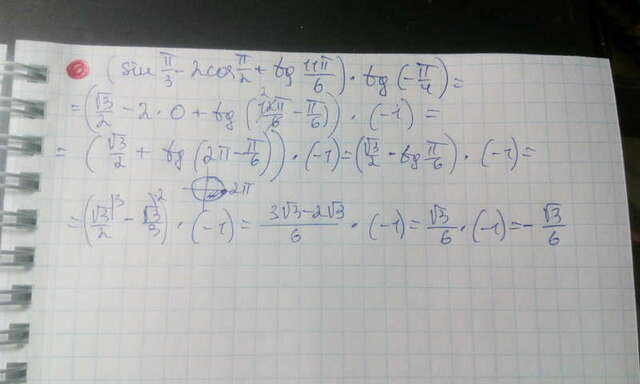 (sin π/3 - 2cos π/2 + tg 11π/6) · tg(-π/4) =
= (√3/2 - 2 · 0 + tg(12π/6 - π/6)) · (-1) =
= (√3/2 + tg(2π - π/6)) · (-1) = (√3/2 - tg π/6) · (-1) =
2π
= (√3/2 - √3/3) · (-1) = 3√3-2√3/6 · (-1) = √3/6 · (-1) = - √3/6